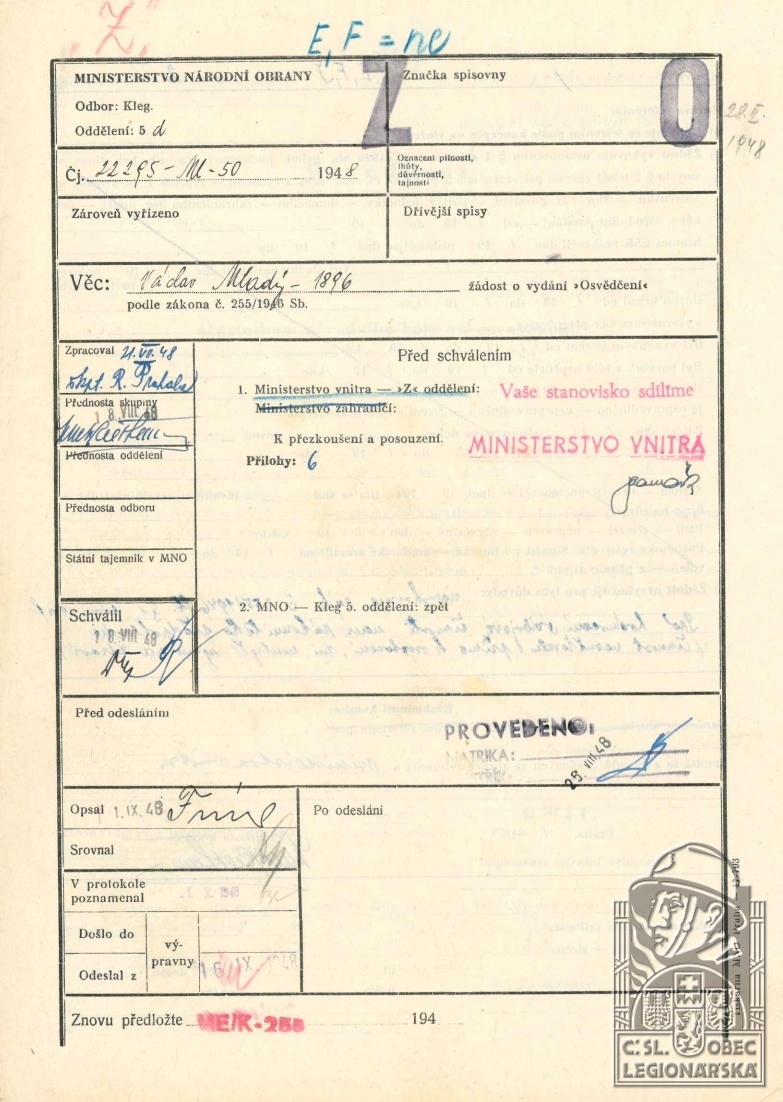 "Z"
E, F = ne
Z O
MINISTERSTVO NÁRODNÍ OBRANY
Odbor: Kleg.
Oddělení: 5 d
Značka spisovny
28.
1948
Čj. 22295-Ml-50 1948
Označení pilnosti,
lhůty,
důvěrnosti,
tajnosti
Zároveň vyřízeno
Dřívější spisy
Věc: Václav Mladý - 1896 žádost o vydání »Osvědčení«
podle zákona č. 255/1946 Sb.
Zpracoval 21.VII.48
škpt. R. Prahala
Přednosta skupiny
18.VIII.48
Přednosta oddělení
Přednosta odboru
Státní tajemník v MNO
Před schválením
1. Ministerstvo vnitra — »Z« oddělení:
Ministerstvo zahraničí:
Vaše stanovisko sdílíme
K přezkoušení a posouzení.
MINISTERSTVO VNITRA
Přílohy: 6
Schválil
18.VIII.48
2. MNO — Kleg 5. oddělení: zpět
Před odesláním
PROVEDENO:
MATRIKA:
28.VIII.48
Opsal 1.IX.48
Srovnal
V protokole
poznamenal
1.X.1948
Došlo do
Odeslal z
vý-
pravny
Po odeslání
Znovu předložte ME/K-255 194
Č:SL. OBEC
LEGIONÁŘSKÁ